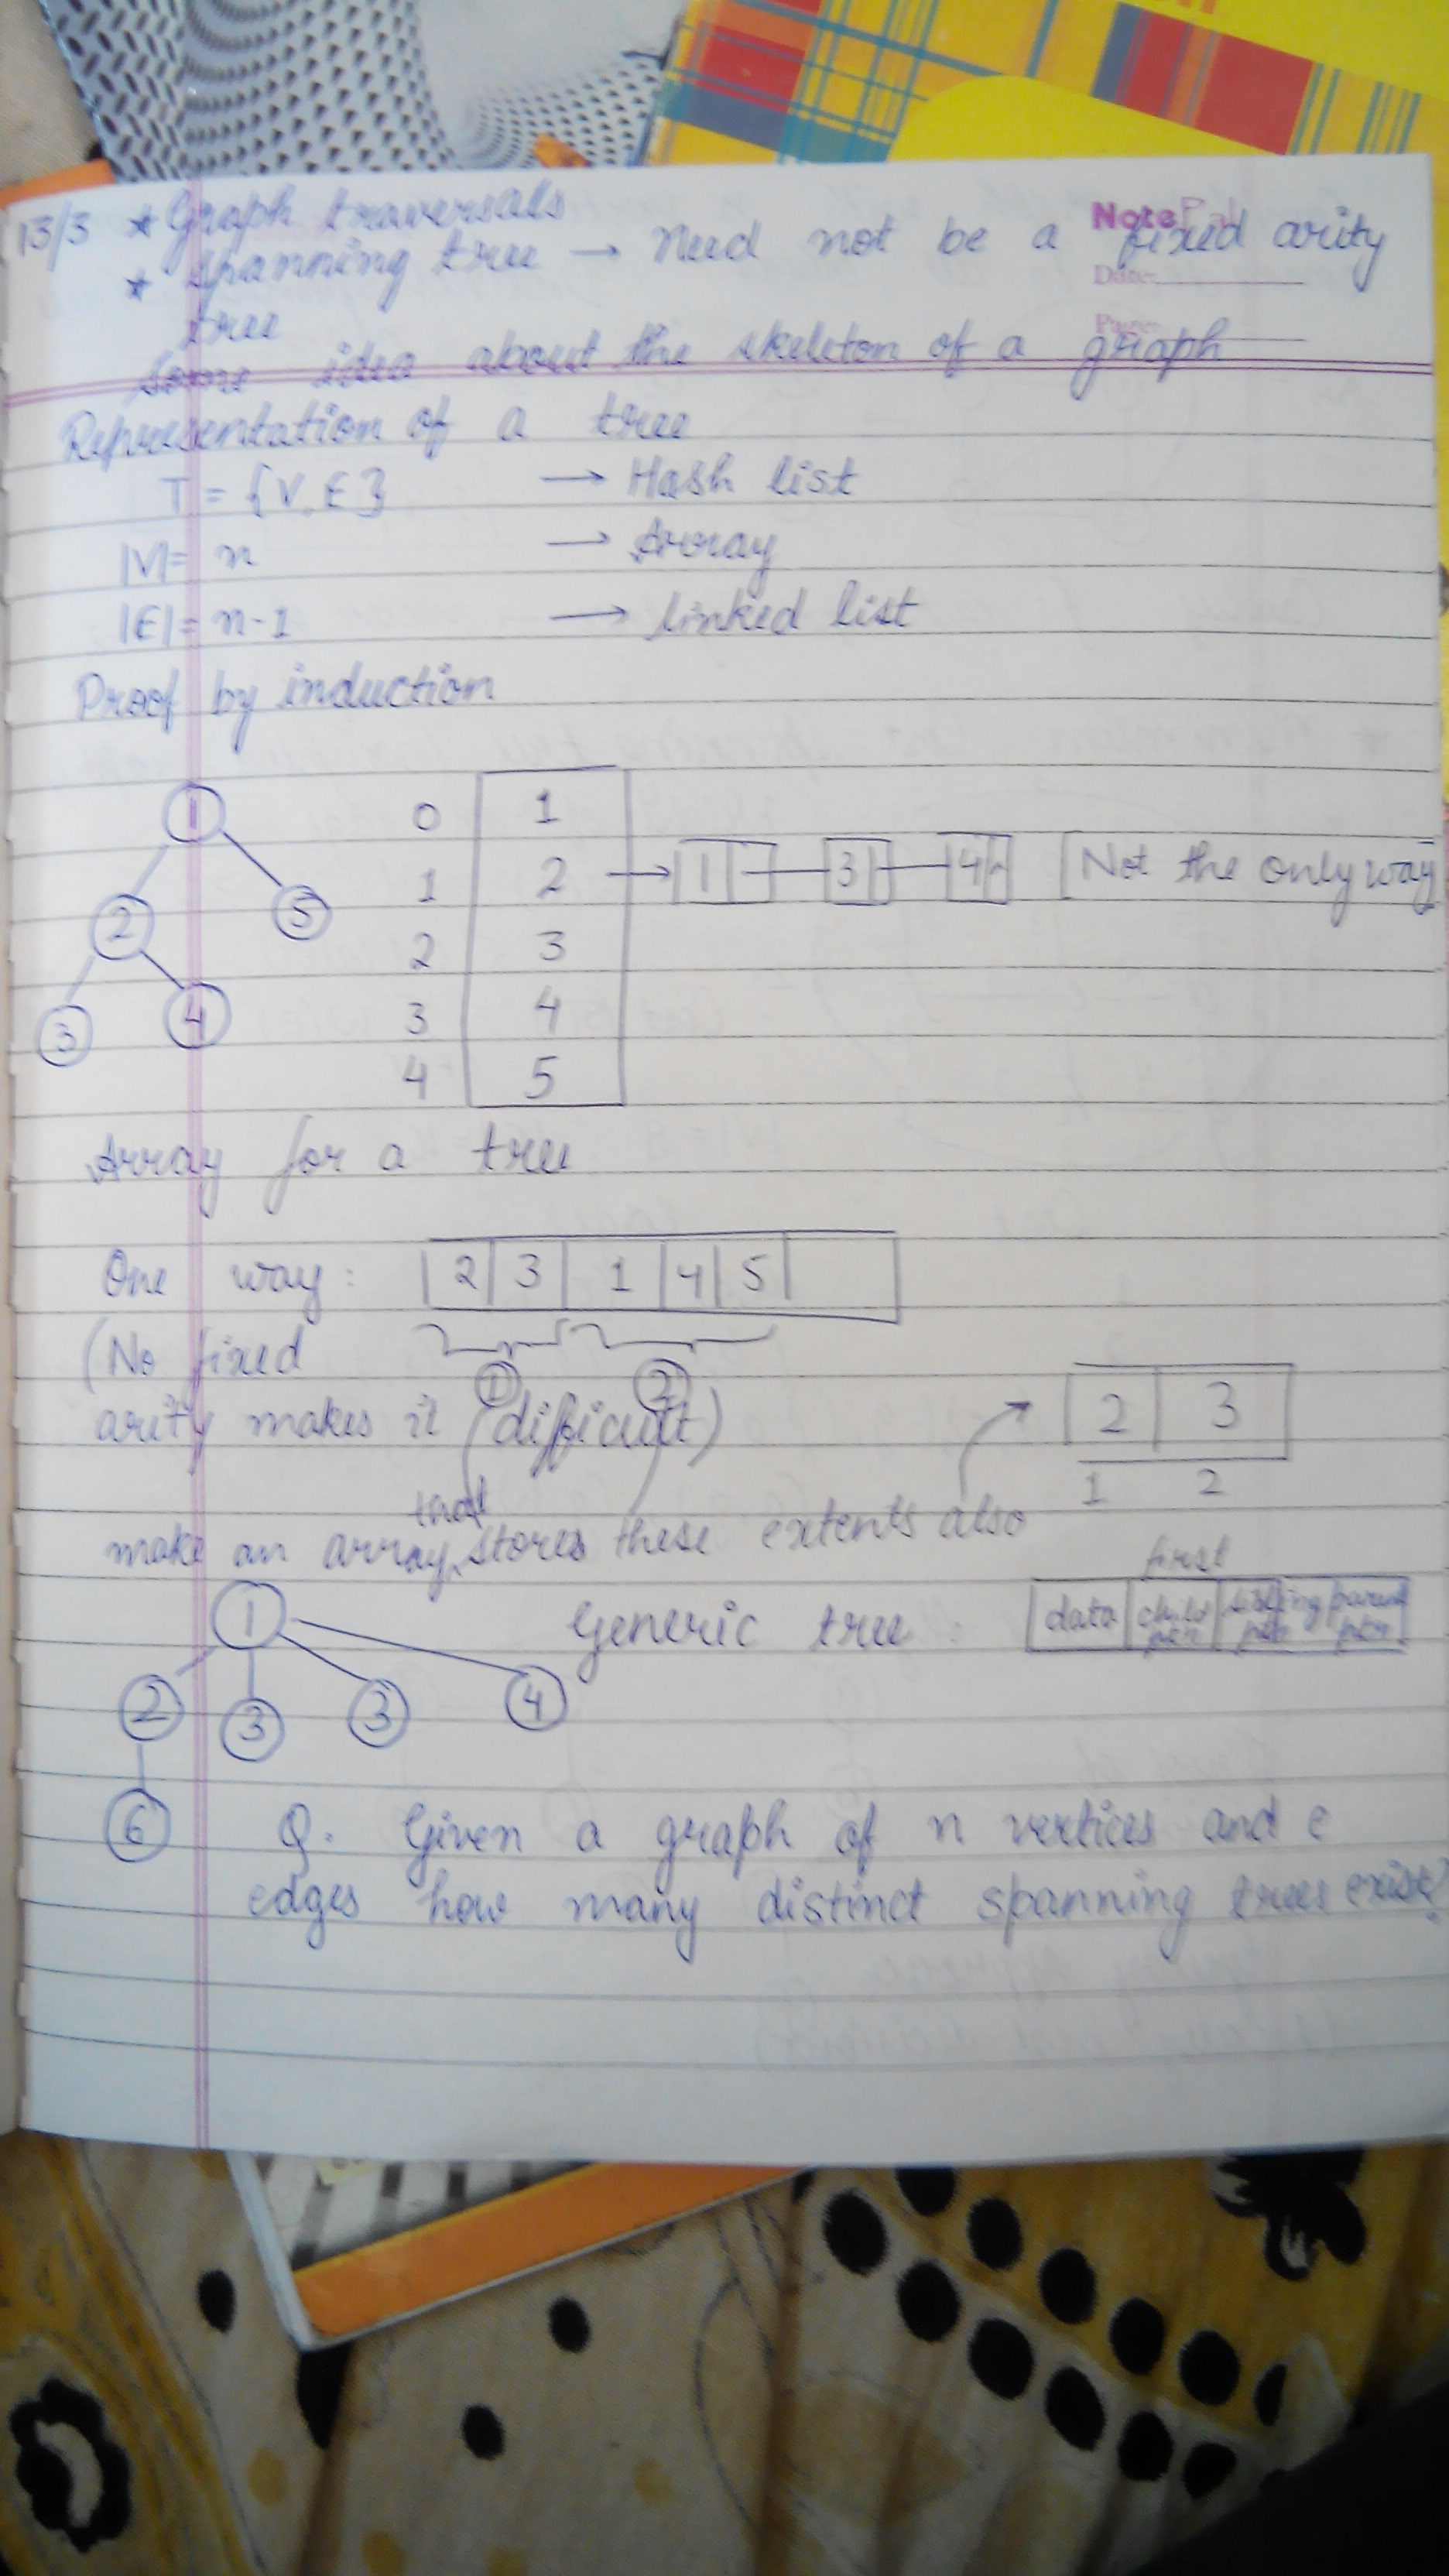 13/3 * Graph traversals
NotePal
* Spanning tree → Need not be a fixed arity
tree
Date:
Page:
Some idea about the skeleton of a graph
Representation of a tree
T = {V, E} → Hash list
|V| = n → Array
|E| = n-1 → Linked list
Proof by induction
1
2 5
3 4
0 1
1 2 → 1 3 4 [Not the only way]
2 3
3 4
4 5
Array for a tree
One way : 2 3 1 4 5
(No fixed
1 2
arity makes it difficult)
2 3
1 2
that
make an array, stores these extents also
first
1 Generic tree : data child ptr sibling ptr parent ptr
2 3 3 4
6
Q. Given a graph of n vertices and e
edges how many distinct spanning trees exist?